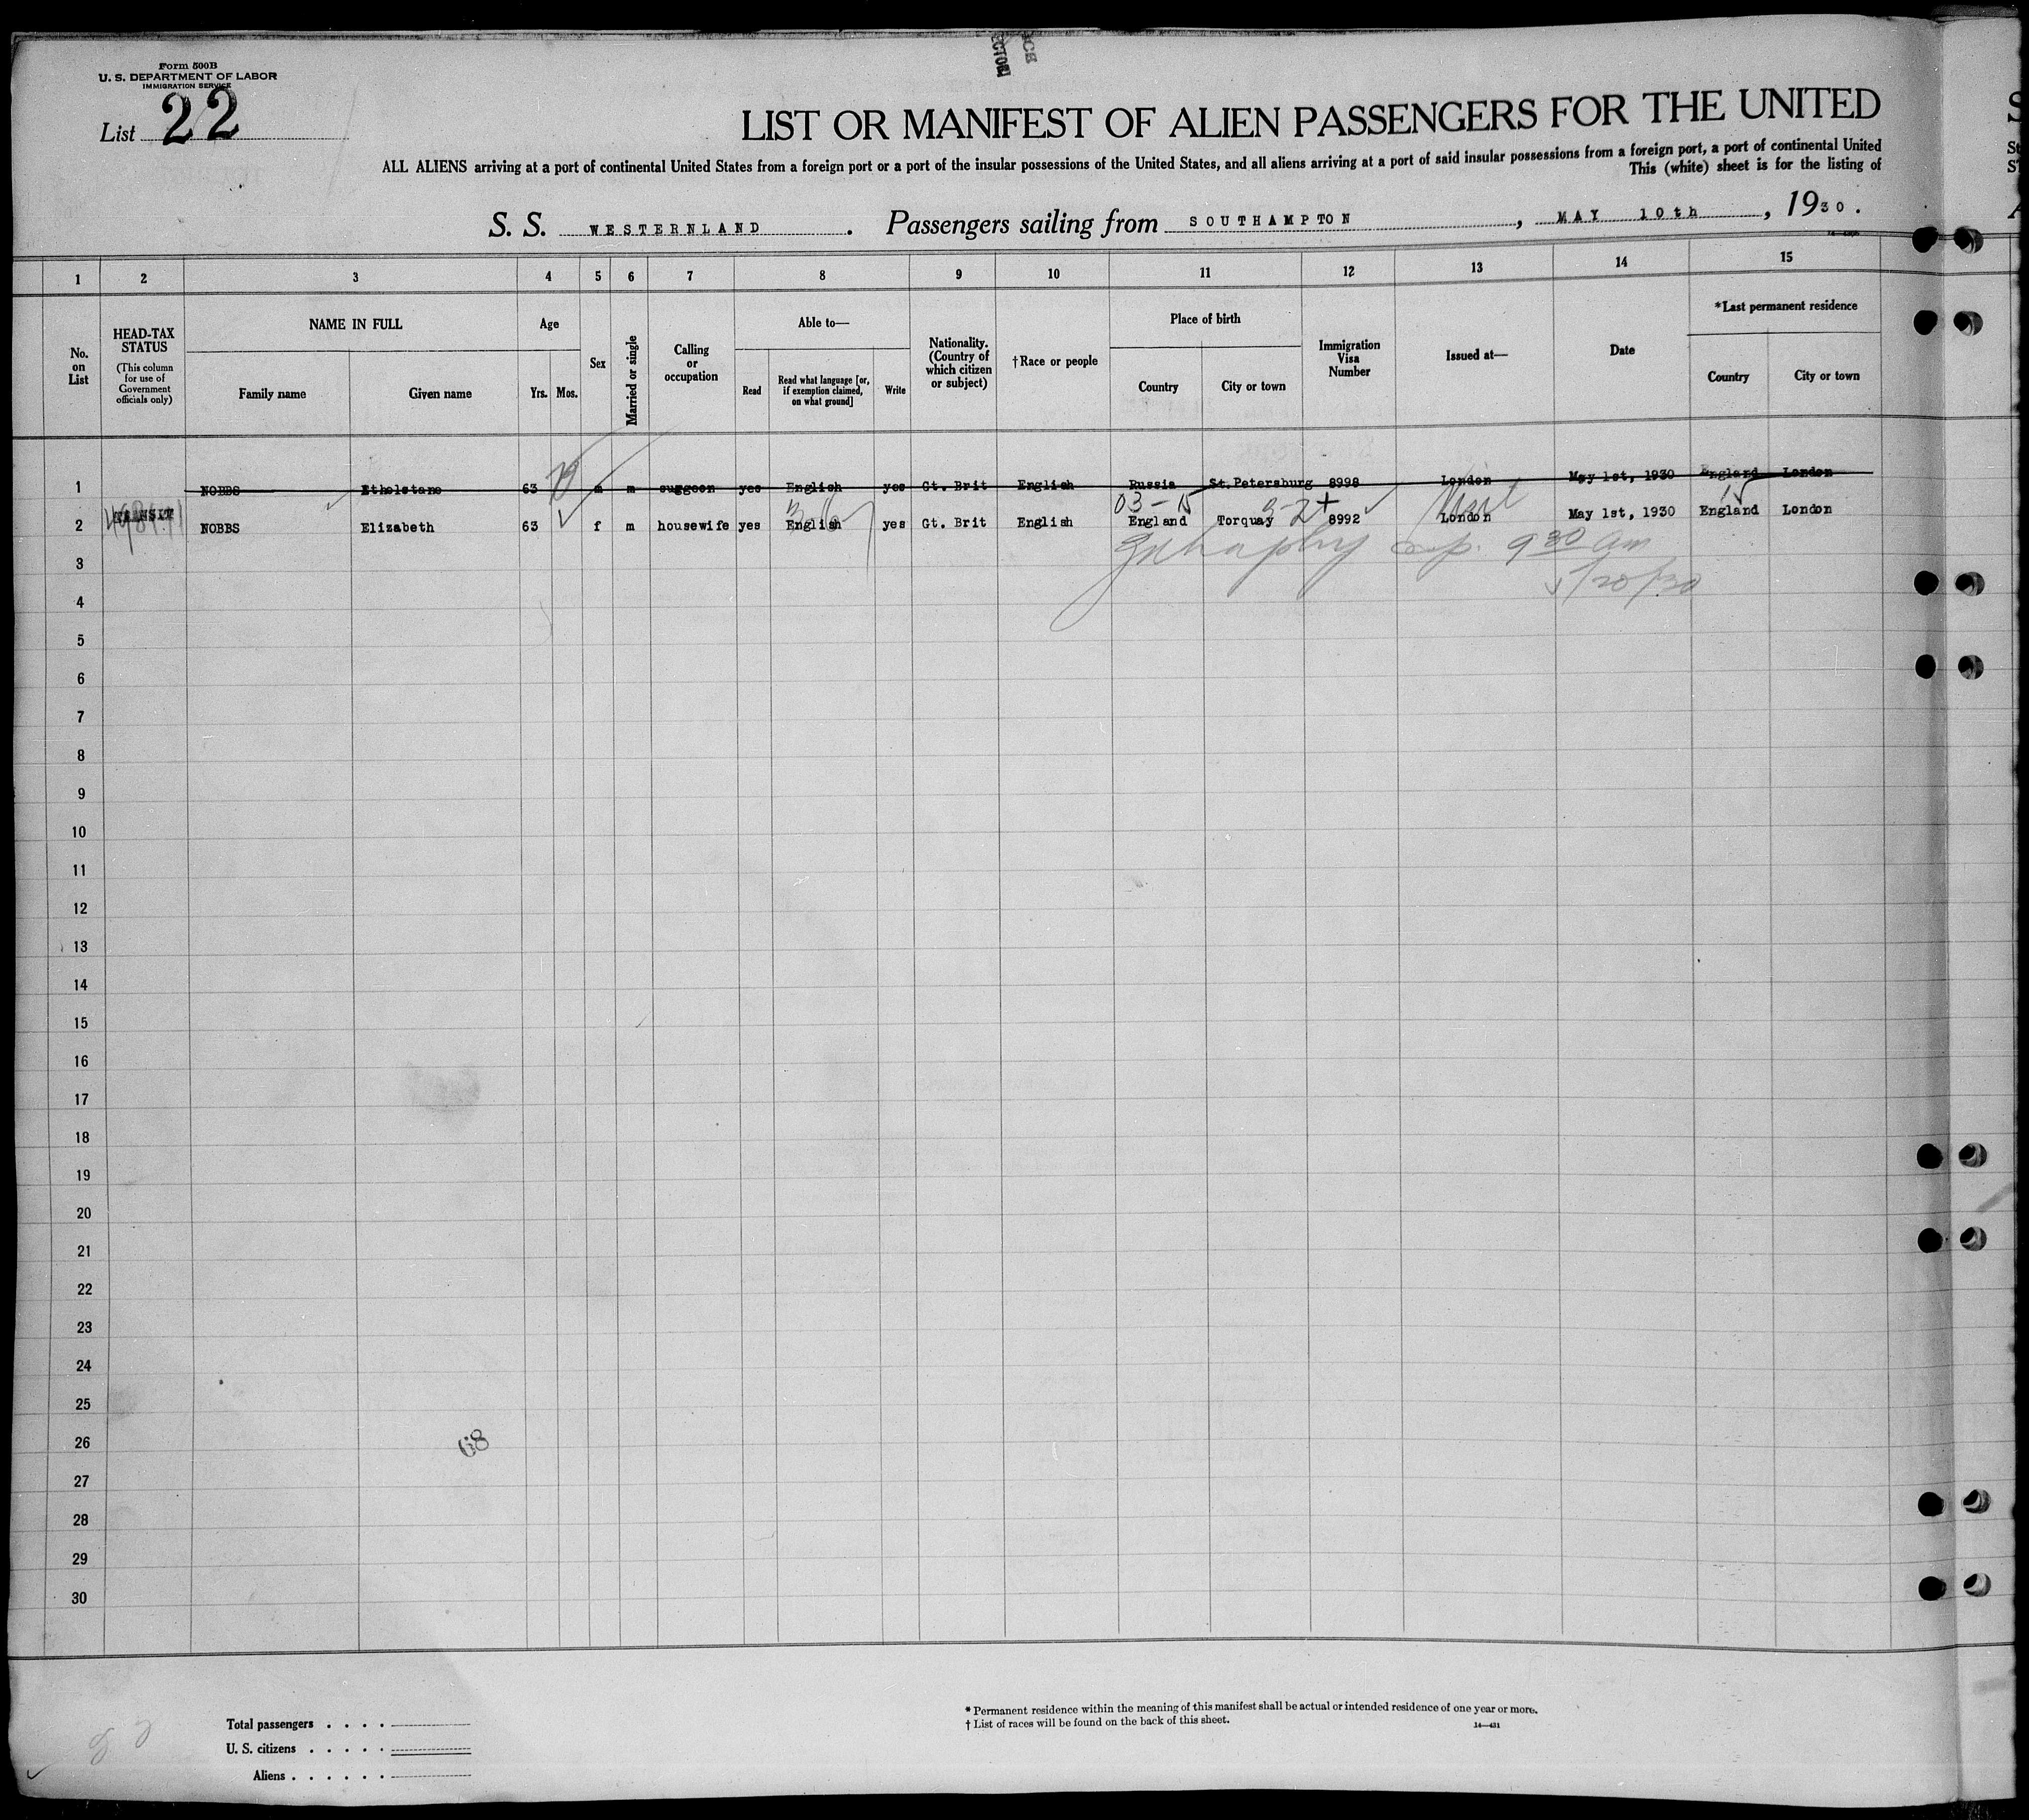 Form 500B
U. S. DEPARTMENT OF LABOR
IMMIGRATION SERVICE
List 22
LIST OR MANIFEST OF ALIEN PASSENGERS FOR THE UNITED
ALL ALIENS arriving at a port of continental United States from a foreign port or a port of the insular possessions of the United States, and all aliens arriving at a port of said insular possessions from a foreign port, a port of continental United
This (white) sheet is for the listing of
S. S. WESTERNLAND . Passengers sailing from SOUTHAMPTON , MAY 10th , 1930 .
1 2 3 4 5 6 7 8 9 10 11 12 13 14 15
No. on List
HEAD-TAX STATUS
(This column for use of Government officials only)
NAME IN FULL
Family name Given name
Age
Yrs. Mos.
Sex
Married or single
Calling or occupation
Able to—
Read
Read what language [or, if exemption claimed, on what ground]
Write
Nationality. (Country of which citizen or subject)
†Race or people
Place of birth
Country City or town
Immigration Visa Number
Issued at—
Date
*Last permanent residence
Country City or town
1 NOBBS 63 m m yes English yes Gt. Brit English Russia St.Petersburg 8998 London May 1st, 1930 England London
03 - 15
2 TRANSIT NOBBS Elizabeth 63 f m housewife yes English yes Gt. Brit English England Torquay 8992 London May 1st, 1930 England London
3 9 30 am
5/20/30
4
5
6
7
8
9
10
11
12
13
14
15
16
17
18
19
20
21
22
23
24
25
26
68
27
28
29
30
Total passengers . . . .
U. S. citizens . . . . .
Aliens . . . . . .
* Permanent residence within the meaning of this manifest shall be actual or intended residence of one year or more.
† List of races will be found on the back of this sheet.
14—431